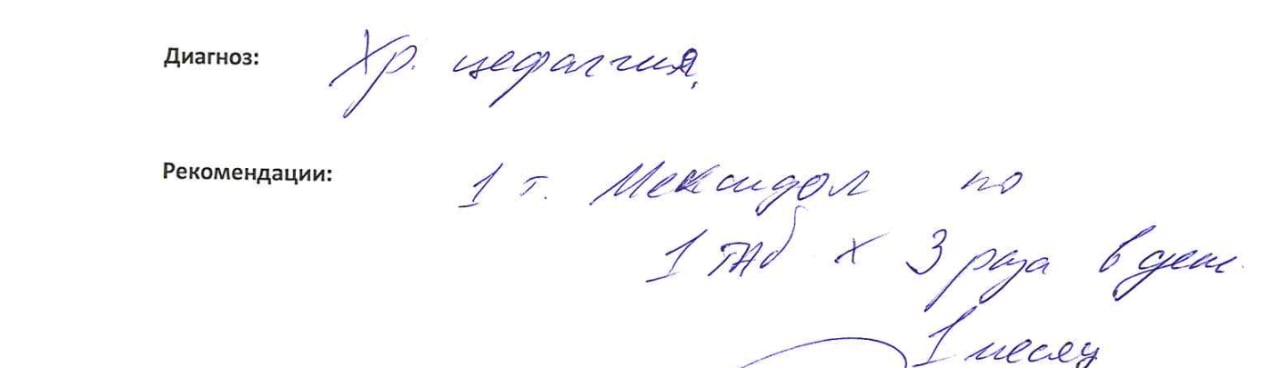 Диагноз: Хр. цефалгия,
Рекомендации: 1 т. Мексидол по
1 таб х 3 раза в день.
1 месяц